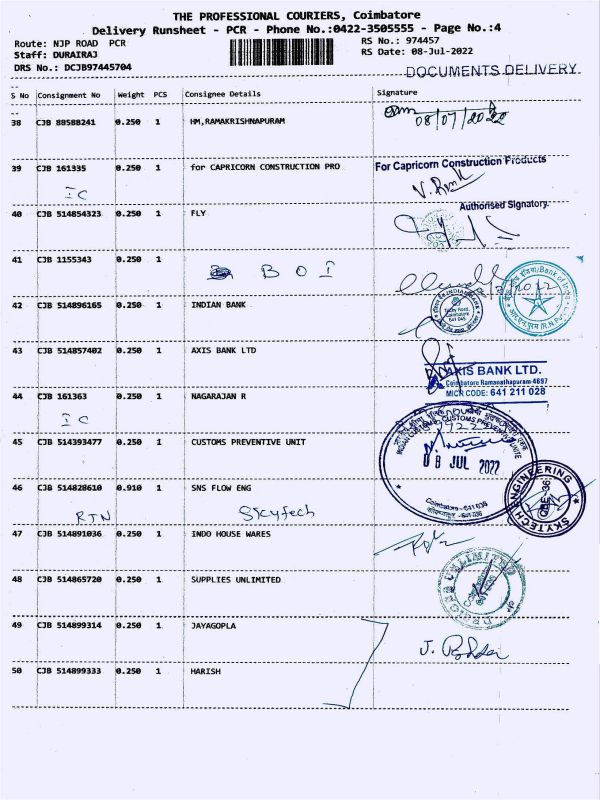 THE PROFESSIONAL COURIERS, Coimbatore
Delivery Runsheet - PCR - Phone No.:0422-3505555 - Page No.:4
Route: NJP ROAD PCR
RS No.: 974457
Staff: DURAIRAJ
RS Date: 08-Jul-2022
DRS No.: DCJB97445704
DOCUMENTS DELIVERY
S No Consignment No Weight PCS Consignee Details Signature
38 CJB 88588241 0.250 1 HM,RAMAKRISHNAPURAM
08/07/2022
39 CJB 161335 0.250 1 for CAPRICORN CONSTRUCTION PRO
For Capricorn Construction Products
IC
Authorised Signatory.
40 CJB 514854323 0.250 1 FLY
41 CJB 1155343 0.250 1
BOI
42 CJB 514896165 0.250 1 INDIAN BANK
43 CJB 514857402 0.250 1 AXIS BANK LTD
AXIS BANK LTD.
Coimbatore Ramanathapuram-4697
MICR CODE: 641 211 028
44 CJB 161363 0.250 1 NAGARAJAN R
IC
45 CJB 514393477 0.250 1 CUSTOMS PREVENTIVE UNIT
08 JUL 2022
Coimbatore - 641 036
46 CJB 514828610 0.910 1 SNS FLOW ENG
SKYTECH ENGINEERING
CBE-36
RTN Skytech
47 CJB 514891036 0.250 1 INDO HOUSE WARES
48 CJB 514865720 0.250 1 SUPPLIES UNLIMITED
49 CJB 514899314 0.250 1 JAYAGOPLA
50 CJB 514899333 0.250 1 HARISH